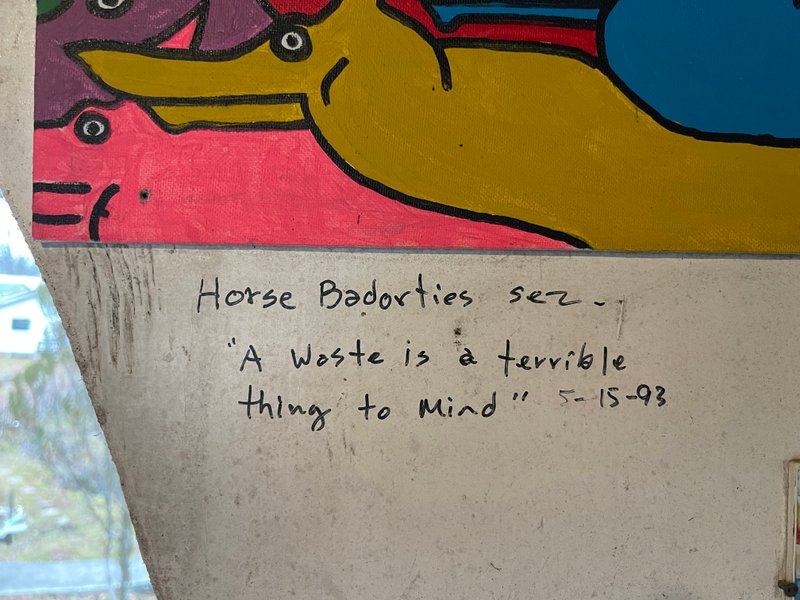 Horse Badorties sez -
"A Waste is a terrible
thing to Mind" 5-15-93